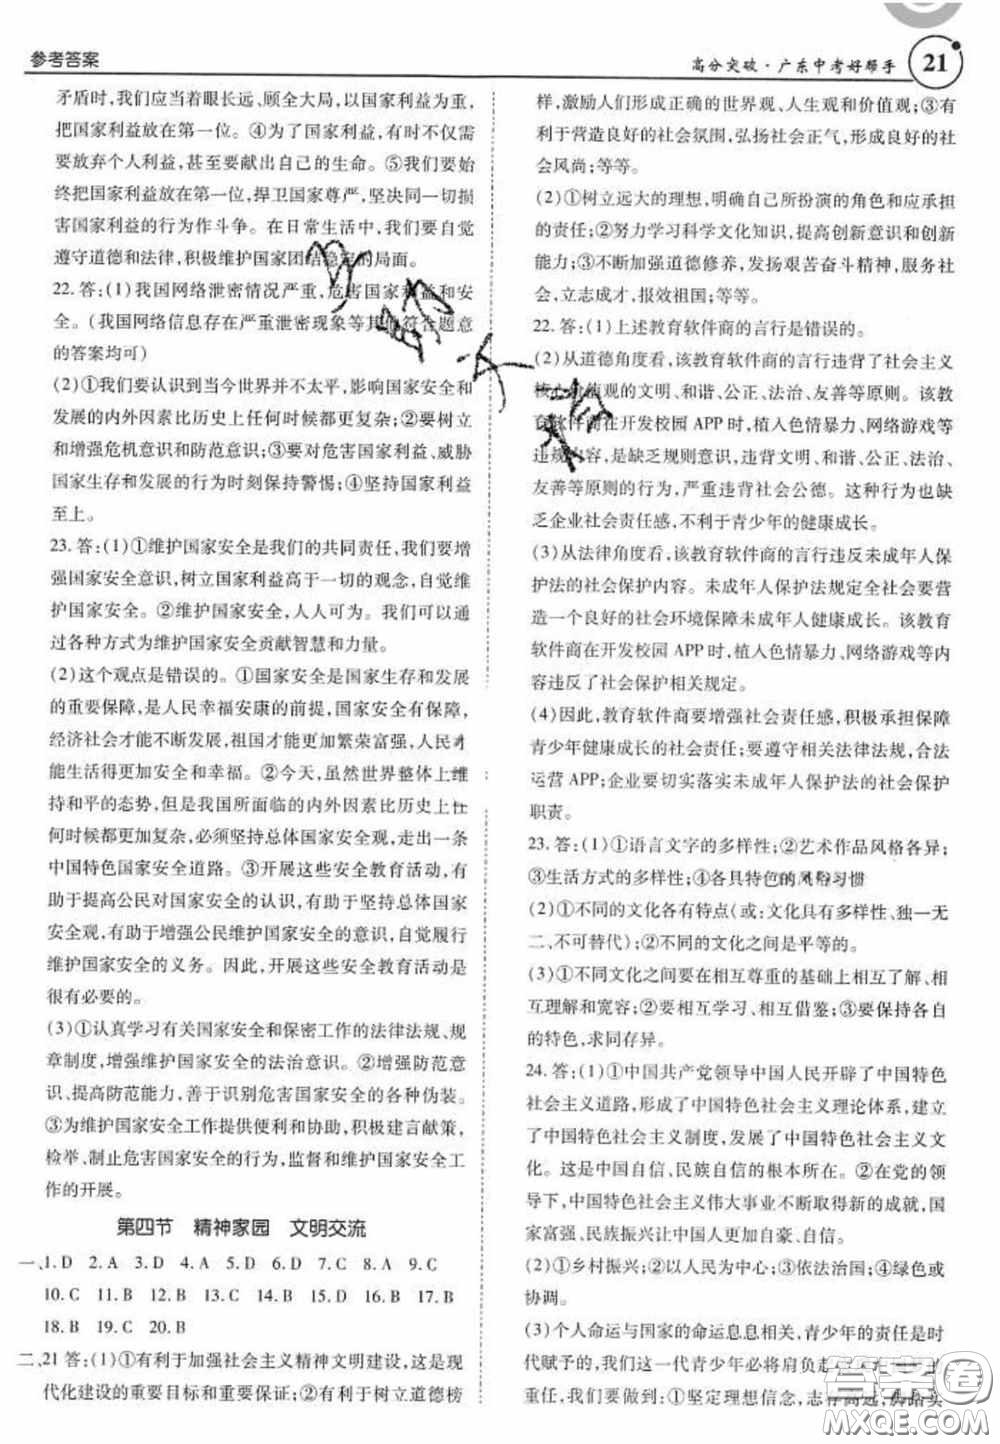 参考答案
高分突破·广东中考好帮手
21
矛盾时,我们应当着眼长远、顾全大局,以国家利益为重,
把国家利益放在第一位。④为了国家利益,有时我们需
要放弃个人利益,甚至要献出自己的生命。⑤我们要始
终把国家利益放在第一位,捍卫国家尊严,坚决同一切损
害国家利益的行为作斗争。在日常生活中,我们要自觉
遵守道德和法律,积极维护国家团结稳定的局面。
22. 答:(1)我国网络泄密情况严重,危害国家利益和安
全。(我国网络信息存在严重泄密现象等其他符合题意
的答案均可)
(2)①我们要认识到当今世界并不太平,影响国家安全和
发展的内外因素比历史上任何时候都更复杂;②要树立
和增强危机意识和防范意识;③要对危害国家利益、威胁
国家生存和发展的行为时刻保持警惕;④坚持国家利益
至上。
23. 答:(1)①维护国家安全是我们的共同责任,我们要增
强国家安全意识,树立国家利益高于一切的观念,自觉维
护国家安全。②维护国家安全,人人可为。我们可以通
过各种方式为维护国家安全贡献智慧和力量。
(2)这个观点是错误的。①国家安全是国家生存与发展
的重要保障,是人民幸福安康的前提,国家安全有保障,
经济社会才能不断发展,祖国才能更加繁荣富强,人民才
能生活得更加安全和幸福。②今天,虽然世界整体上维
持和平的态势,但是我国所面临的内外因素比历史上任
何时候都更加复杂,必须坚持总体国家安全观,走出一条
中国特色国家安全道路。③开展这些安全教育活动,有
助于提高公民对国家安全的认识,有助于提高国家总体
安全观,有助于增强公民维护国家安全的意识,自觉履行
维护国家安全的义务。因此,开展这些安全教育活动是
很有必要的。
(3)①认真学习有关国家安全和保密工作的法律法规、规
章制度,增强维护国家安全的法治意识。②增强防范意
识,提高防范能力,善于识别危害国家安全的各种伪装。
③为维护国家安全工作提供便利和协助,积极建言献策,
检举、制止危害国家安全的行为,监督和维护国家安全工
作的开展。
第四节 精神家园 文明交流
一、1. D 2. A 3. D 4. A 5. D 6. D 7. C 8. A 9. C
10. C 11. B 12. B 13. C 14. B 15. C 16. B 17. B
18. B 19. C 20. B
二、21 答:(1)①有利于加强社会主义精神文明建设,这是现
代化建设的重要目标和重要保证;②有利于树立道德榜
样,激励人们形成正确的世界观、人生观和价值观;③有
利于营造良好的社会氛围,弘扬社会正气,形成良好的社
会风尚;等等。
(2)①树立远大的理想,明确自己所扮演的角色和应承担
的责任;②努力学习科学文化知识,提高创新意识和创新
能力;③不断加强道德修养,发扬艰苦奋斗精神,服务社
会,立志成才,报效祖国;等等。
22. 答:(1)上述教育软件商的言行是错误的。
(2)从道德角度看,该教育软件商的言行违背了社会主义
核心价值观的文明、和谐、公正、法治、友善等原则。该教
育软件商在开发校园 APP 时,植入色情暴力、网络游戏等
违规内容,是缺乏规则意识,违背文明、和谐、公正、法治、
友善等原则的行为,严重违背社会公德。这种行为也缺
乏企业社会责任感,不利于青少年的健康成长。
(3)从法律角度看,该教育软件商的言行违反未成年人保
护法的社会保护内容。未成年人保护法规定全社会要营
造一个良好的社会环境保障未成年人健康成长。该教育
软件商在开发校园 APP 时,植入色情暴力、网络游戏等内
容违反了社会保护相关规定。
(4)因此,教育软件商要增强社会责任感,积极承担保障
青少年健康成长的社会责任;要遵守相关法律法规,合法
运营 APP;企业要切实落实未成年人保护法的社会保护
职责。
23. 答:(1)①语言文字的多样性;②艺术作品风格各异;
③生活方式的多样性;④各具特色的风俗习惯
(2)①不同的文化各有特点(或:文化具有多样性、独一无
二、不可替代);②不同的文化之间是平等的。
(3)①不同文化之间要在相互尊重的基础上相互了解、相
互理解和宽容;②要相互学习、相互借鉴;③要保持各自
的特色,求同存异。
24. 答:(1)①中国共产党领导中国人民开辟了中国特色
社会主义道路,形成了中国特色社会主义理论体系,建立
了中国特色社会主义制度,发展了中国特色社会主义文
化。这是中国自信、民族自信的根本所在。②在党的领
导下,中国特色社会主义伟大事业不断取得新的成就,国
家富强、民族振兴让中国人更加自尊、自信。
(2)①乡村振兴;②以人民为中心;③依法治国;④绿色或
协调。
(3)个人命运与国家的命运息息相关,青少年的责任是时
代赋予的,我们这一代青少年必将肩负起
重任,我们要做到:①坚定理想信念,志存高远,脚踏实
答案圈
MXQE.COM